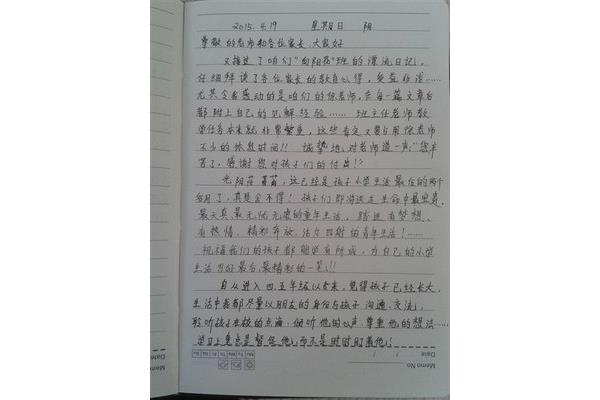 2015.4.19 星期日 阴
尊敬的老师和各位家长,大家好
又接过了咱们"向阳花"班的漂流日记,
仔细拜读了各位家长的教育心得,受益非浅……
尤其令我感动的是咱们的徐老师,在每一篇文章后
都附上自己的见解经验…… 班主任老师教
学任务本来就非常繁重,这些肯定又要占用徐老师
不少的休息时间!! 诚挚地对老师道一声:"您辛
苦了,感谢您对孩子们的付出!"
光阴荏苒,这已经是孩子小学生活最后的两个
多月了,真是舍不得! 孩子们即将远走生命中最宝贵、
最天真、最无忧无虑的童年生活, 踏进有梦想、
有热情、精彩奔放、活力四射的青年生活!……
祝福我们的孩子都能学有所成,为自己的小学
生活画好最后、最精彩的一笔!!
自从进入四、五年级以来,觉得孩子已经长大,
生活中我都尽量以朋友的身份与孩子沟通、交流,
聆听孩子在校的点滴,倾听他的心声,尊重他的想法……
学习上更多是督促他,而不是时时盯着他,
Mo Tu We Th Fr Sa Su
Memo No.
Date / /
Date